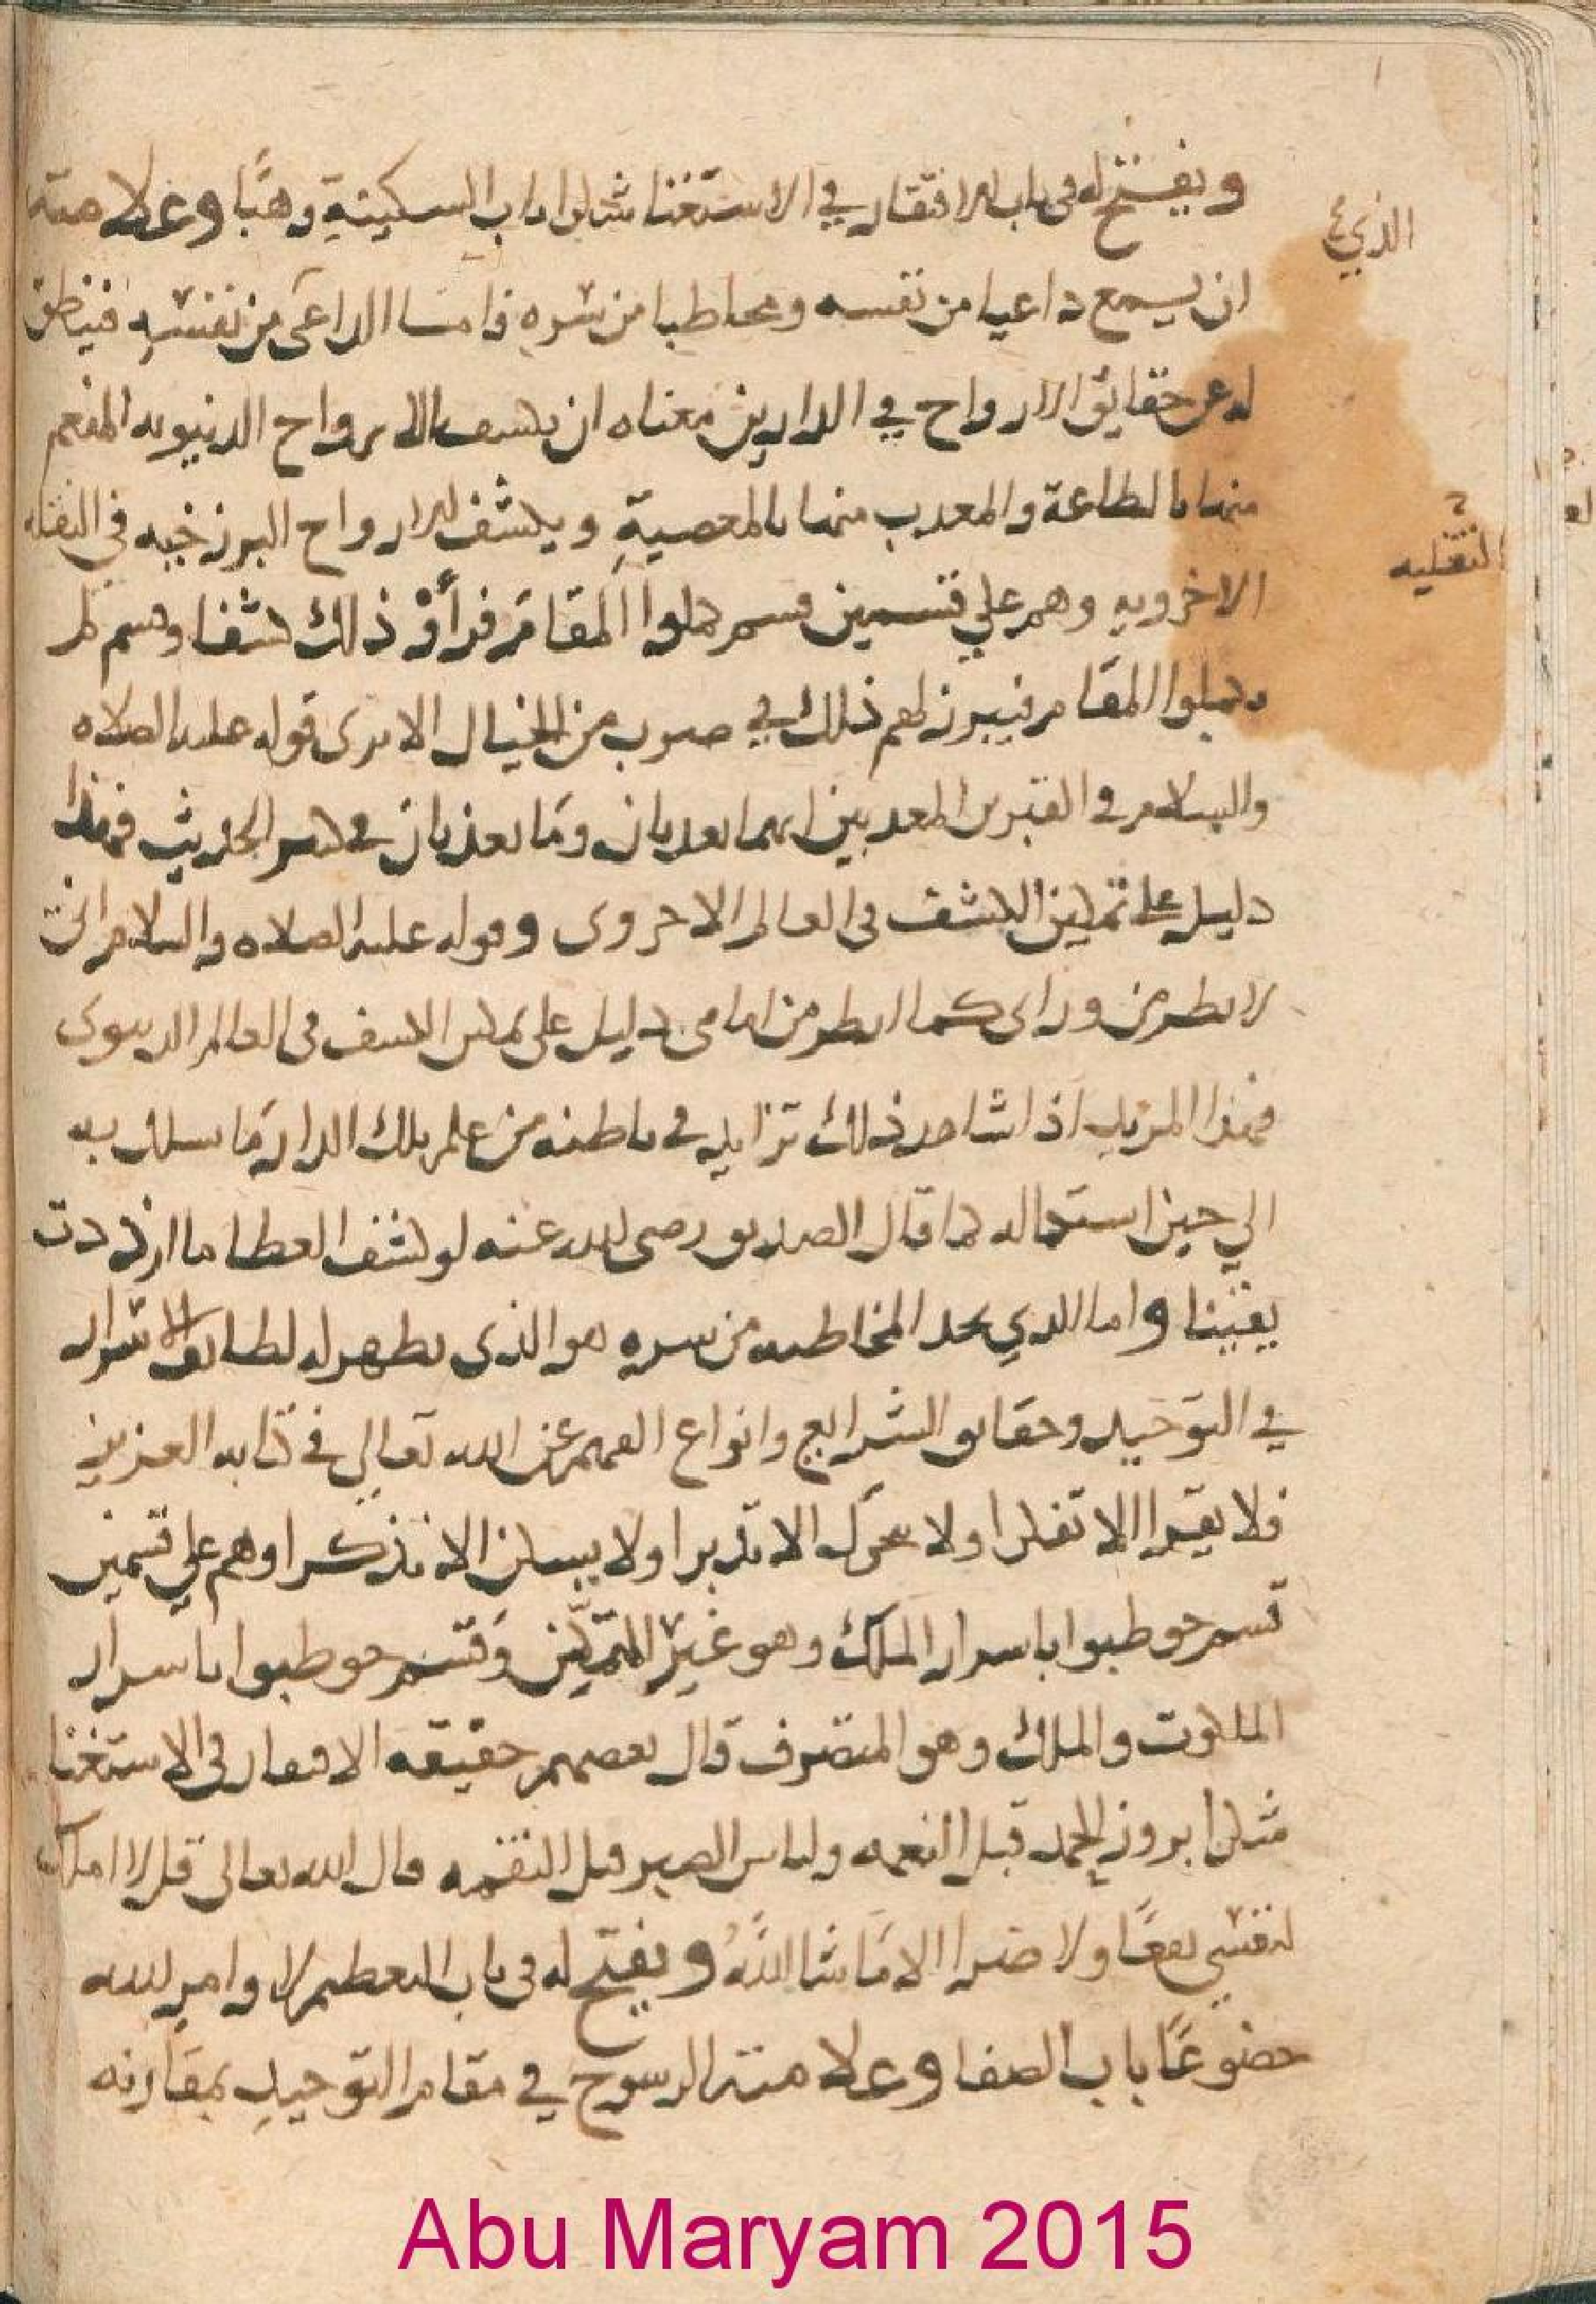 ويفتح له في باب الافتقار في الاستغنا شكرا باب السكينة وهبا وعلامته
ان يسمع داعيا من نفسه ومخاطبا من سره فامسا الداعى من نفسه فينطق
الذي
له عن حقايق الارواح في الدارين معناه ان يكشف الارواح الدنيويه المنعم
منها بالطاعة والمعذب منها بالمعصية ويكشف الارواح البرزخيه في
النقليه
الاخرويه وهم علي قسمين قسم كملوا المقام فرأوْ ذلك كشفا وقسم لم
يكملوا المقام فيبرز لهم ذلك في ضرب من الخيال الا ترى قوله عليه الصلاه
والسلام في القبرين المعذبين انهما يعذبان وما يعذبان في كبير الحديث فهذا
دليل على تمكين الكشف في العالم الاخروى وقوله عليه الصلاه والسلام اني
لانظر من وراى كما انظر من امامى دليل على تمكين الكشف في العالم الدنيوى
فهذا المريد اذا شاهد ذلك تزايد في باطنه من علم تلك الدار ما سلك به
الي حين استكماله كما قال الصديق رضى الله عنه لو كشف الغطا ما ازددت
يقينا واما الذي يجد المخاطبه من سره هو الذى يظهر له لطايف الاسرار
في التوحيد وحقايق الشرايع وانواع الفهم عن الله تعالي في كتابه العزيز
فلا يقرا الا تفكرا ولا يتحرك الا تدبرا ولا يسكن الا تذكرا وهم علي قسمين
قسم خوطبوا باسرار الملك وهو غير المتمكن وقسم خوطبوا باسرار
الملكوت والملك وهو المتصرف قال بعضهم حقيقه الافتقار في الاستغنا
شكرا بروز الحمد قبل النعمه ولباس الصبر قبل النقمه قال الله تعالى قل لا املك
لنفسي نفعًا ولا ضرا الا ما شا اللهُ ويفتح له في باب التعظيم لاوامر الله
خضوعًا باب الصفا وعلامته الرسوخ في مقام التوحيد بمقارنه
Abu Maryam 2015